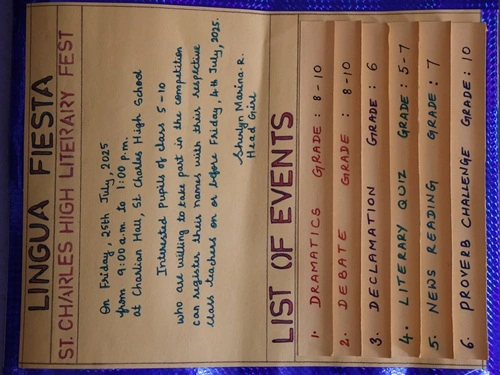 LINGUA FIESTA
ST. CHARLES HIGH LITERARY FEST
On Friday, 25th July, 2025
from 9:00 a.m to 1:00 p.m.
at Charlian Hall, St Charles High School
Interested Pupils of class 5-10
who are willing to take part in the competition
can register their names with their respective
class teachers on or before Friday, 4th July, 2025.
Sherlyn Marina. R.
Head Girl
LIST OF EVENTS
1. DRAMATICS GRADE: 8-10
2. DEBATE GRADE: 8-10
3. DECLAMATION GRADE: 6
4. LITERARY QUIZ GRADE: 5-7
5. NEWS READING GRADE: 7
6. PROVERB CHALLENGE GRADE: 10